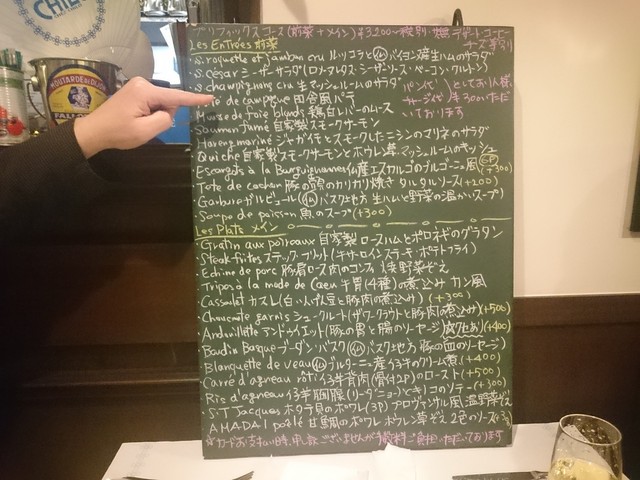 CHILE
MOUTARDE DE DIJON
FALLOT
プリフィックスコース(前菜+メイン)¥3200〜税別・
デザート・コーヒー
チーズ等別
Les Entrées 前菜
S. roquette et jambon cru ルッコラとバイヨンヌ産生ハムのサラダ
S. César シーザーサラダ(ロメインレタス・シーザーソース・ベーコン・クルトン)
S. champignons cru 生マッシュルームのサラダ
パン代としてお一人様
de campagne 田舎風パテ
チャージ代 ¥300いただ
いております
Mousse de foie blonds 鶏白レバーのムース
Saumon fumé 自家製スモークサーモン
Hareng mariné ジャガイモとスモークしたニシンのマリネのサラダ
Quiche 自家製スモークサーモンとホウレン草、マッシュルームのキッシュ
Escargots à la Bourguignonne 仏産エスカルゴのブルゴーニュ風 (6P) (+300)
Tete de cochon 豚の頭のカリカリ焼き タルタルソース(+200)
Garbure ガルビュール バスク地方 生ハムと野菜の温かいスープ
Soupe de poisson 魚のスープ(+300)
Les Plats メイン
Gratin aux poireaux 自家製ロースハムとポロネギのグラタン
Steak frites ステックフリット(牛サーロインステーキ・ポテトフライ)
Echine de porc 豚肩ロース肉のコンフィ 温野菜ぞえ
Tripes à la mode de Caen 牛胃(4種)の煮込み カン風
Cassoulet カスレ(白いんげん豆と豚肉の煮込み)(+300)
Choucroute garnis シュークルート(ザワークラウトと豚肉の煮込み)(+500)
Andouillette アンドゥイエット(豚の胃と腸のソーセージ) (+400)
Boudin Basque ブーダン・バスク バスク地方 豚の血のソーセージ)
Blanquette de veau ブルターニュ産仔牛のクリーム煮(+400)
Carré d'agneau rôti 仔羊背肉(骨付2P)のロースト(+500)
Ris d'agneau 仔羊胸腺(リー・ダニョー)とキノコのソテー(+300)
ST Jacques ホタテ貝のポワレ(3P) プロヴァンサル風 温野菜ぞえ
AMADAI poêlé 甘鯛のポワレ ホウレン草ぞえ 2色のソース
※カードお支払い時、申し訳ございませんが手数料ご負担いただいております